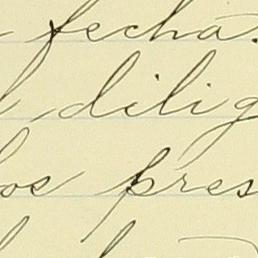 fecha.
dilig
os pres